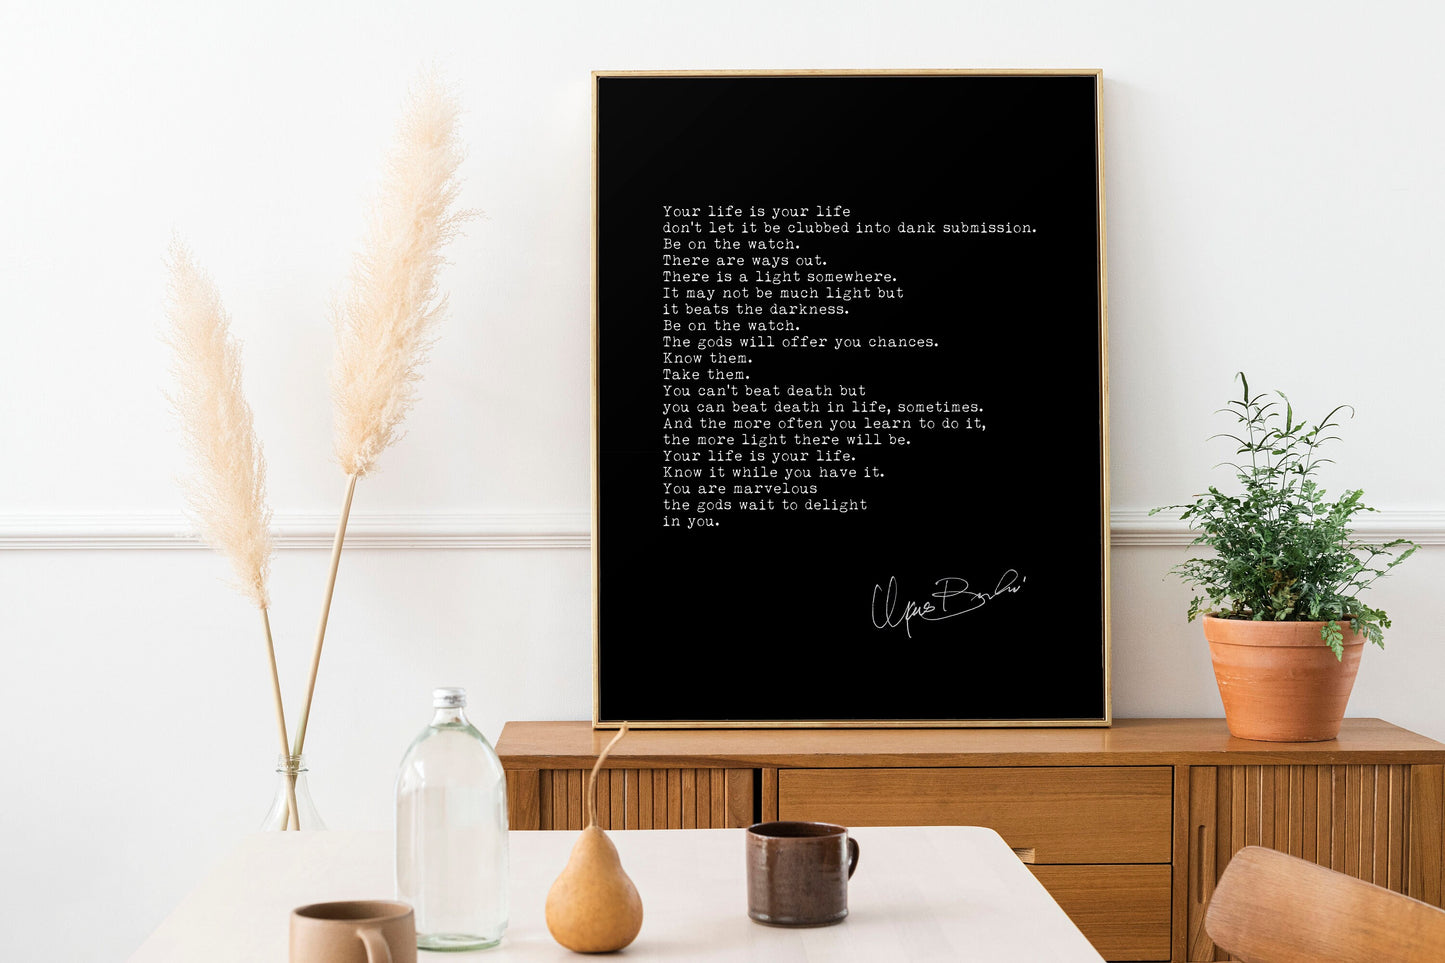 Your life is your life
don't let it be clubbed into dank submission.
Be on the watch.
There are ways out.
There is a light somewhere.
It may not be much light but
it beats the darkness.
Be on the watch.
The gods will offer you chances.
Know them.
Take them.
You can't beat death but
you can beat death in life, sometimes.
And the more often you learn to do it,
the more light there will be.
Your life is your life.
Know it while you have it.
You are marvelous
the gods wait to delight
in you.